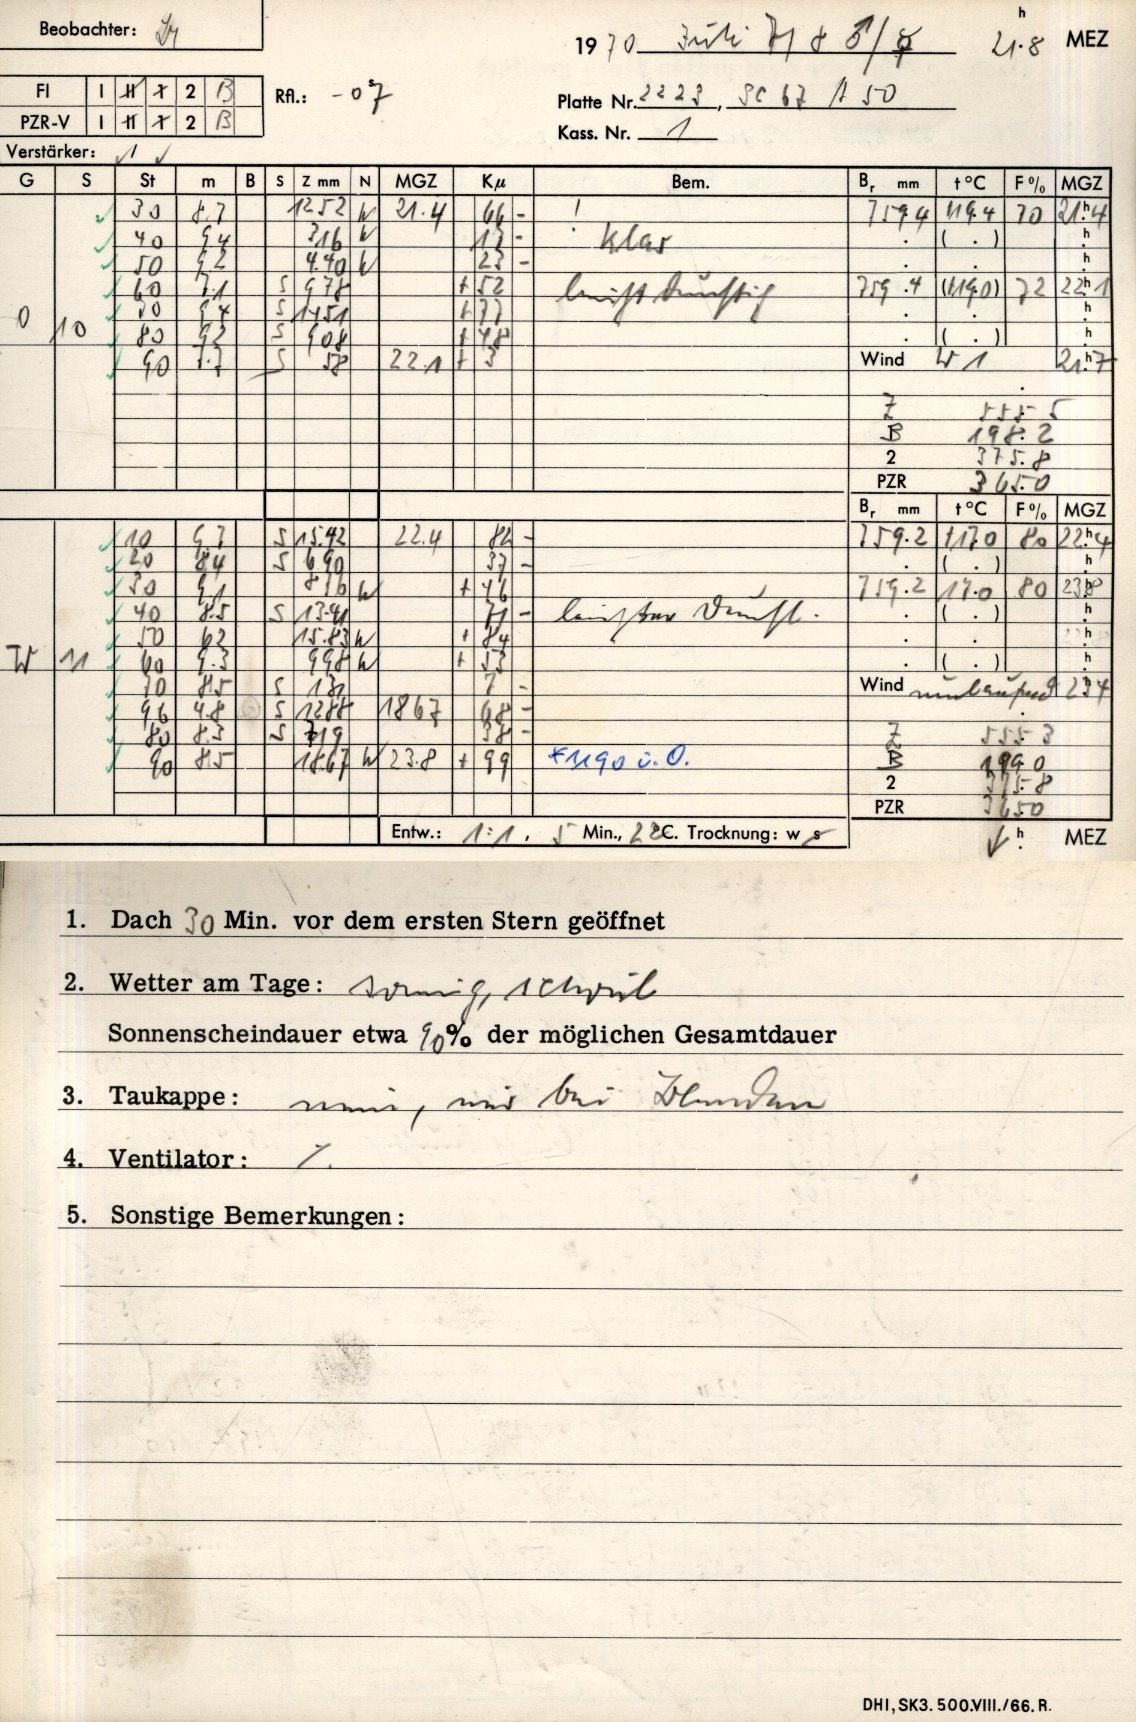 Beobachter:
1970 Juli 7/8 ♂/☿ 21.8 h MEZ
FI 1 II 1 2 B
Rfl.: -0ˢ7
Platte Nr. 2223, SC 67 A 50
PZR-V 1 II 1 2 B
Kass. Nr. 1
Verstärker: 1
G S St m B S Z mm N MGZ Kμ Bem. Br mm t°C F% MGZ
30 8.7 1252 W 21.4 66 - ! 759.4 +19.4 70 21h4
40 9.4 316 W 17 - klar . ( . ) h
50 9.2 4.40 W 23 - . . h
60 7.1 S 978 + 52 leicht dunstig 759.4 (+19.0) 72 22h1
O 10 70 9.4 S 1451 + 77 . . h
80 9.2 S 908 + 48 . ( . ) h
90 7.7 S 58 22.1 + 3 Wind W 1 21h7
Z 555.5
B 198.2
2 375.8
PZR 365.0
Br mm t°C F% MGZ
10 9.7 S 15.42 22.4 82 - 759.2 +17.0 80 22h4
20 8.4 S 690 37 - . ( . ) h
30 9.1 816 W + 46 759.2 17.0 80 23h8
40 8.5 S 13.41 71 - leichter Dunst. . ( . ) h
50 6.2 15.83 W + 84 . . h
W 11 60 9.3 998 W + 53 . ( . ) h
70 8.5 S 131 7 - Wind umlaufend 23h4
96 4.8 S 1288 1867 68 -
80 8.3 S 719 38 - Z 555.3
90 8.5 18.67 W 23.8 + 99 *1190 i. O. B 199.0
2 375.8
PZR 365.0
Entw.: 1:1, 5 Min., 22°C. Trocknung: w s h MEZ
1. Dach 30 Min. vor dem ersten Stern geöffnet
2. Wetter am Tage: sonnig, schwül
Sonnenscheindauer etwa 90% der möglichen Gesamtdauer
3. Taukappe: nein, nur bei Blenden
4. Ventilator: ⁒
5. Sonstige Bemerkungen:
DHI, SK3. 500.VIII./66. R.